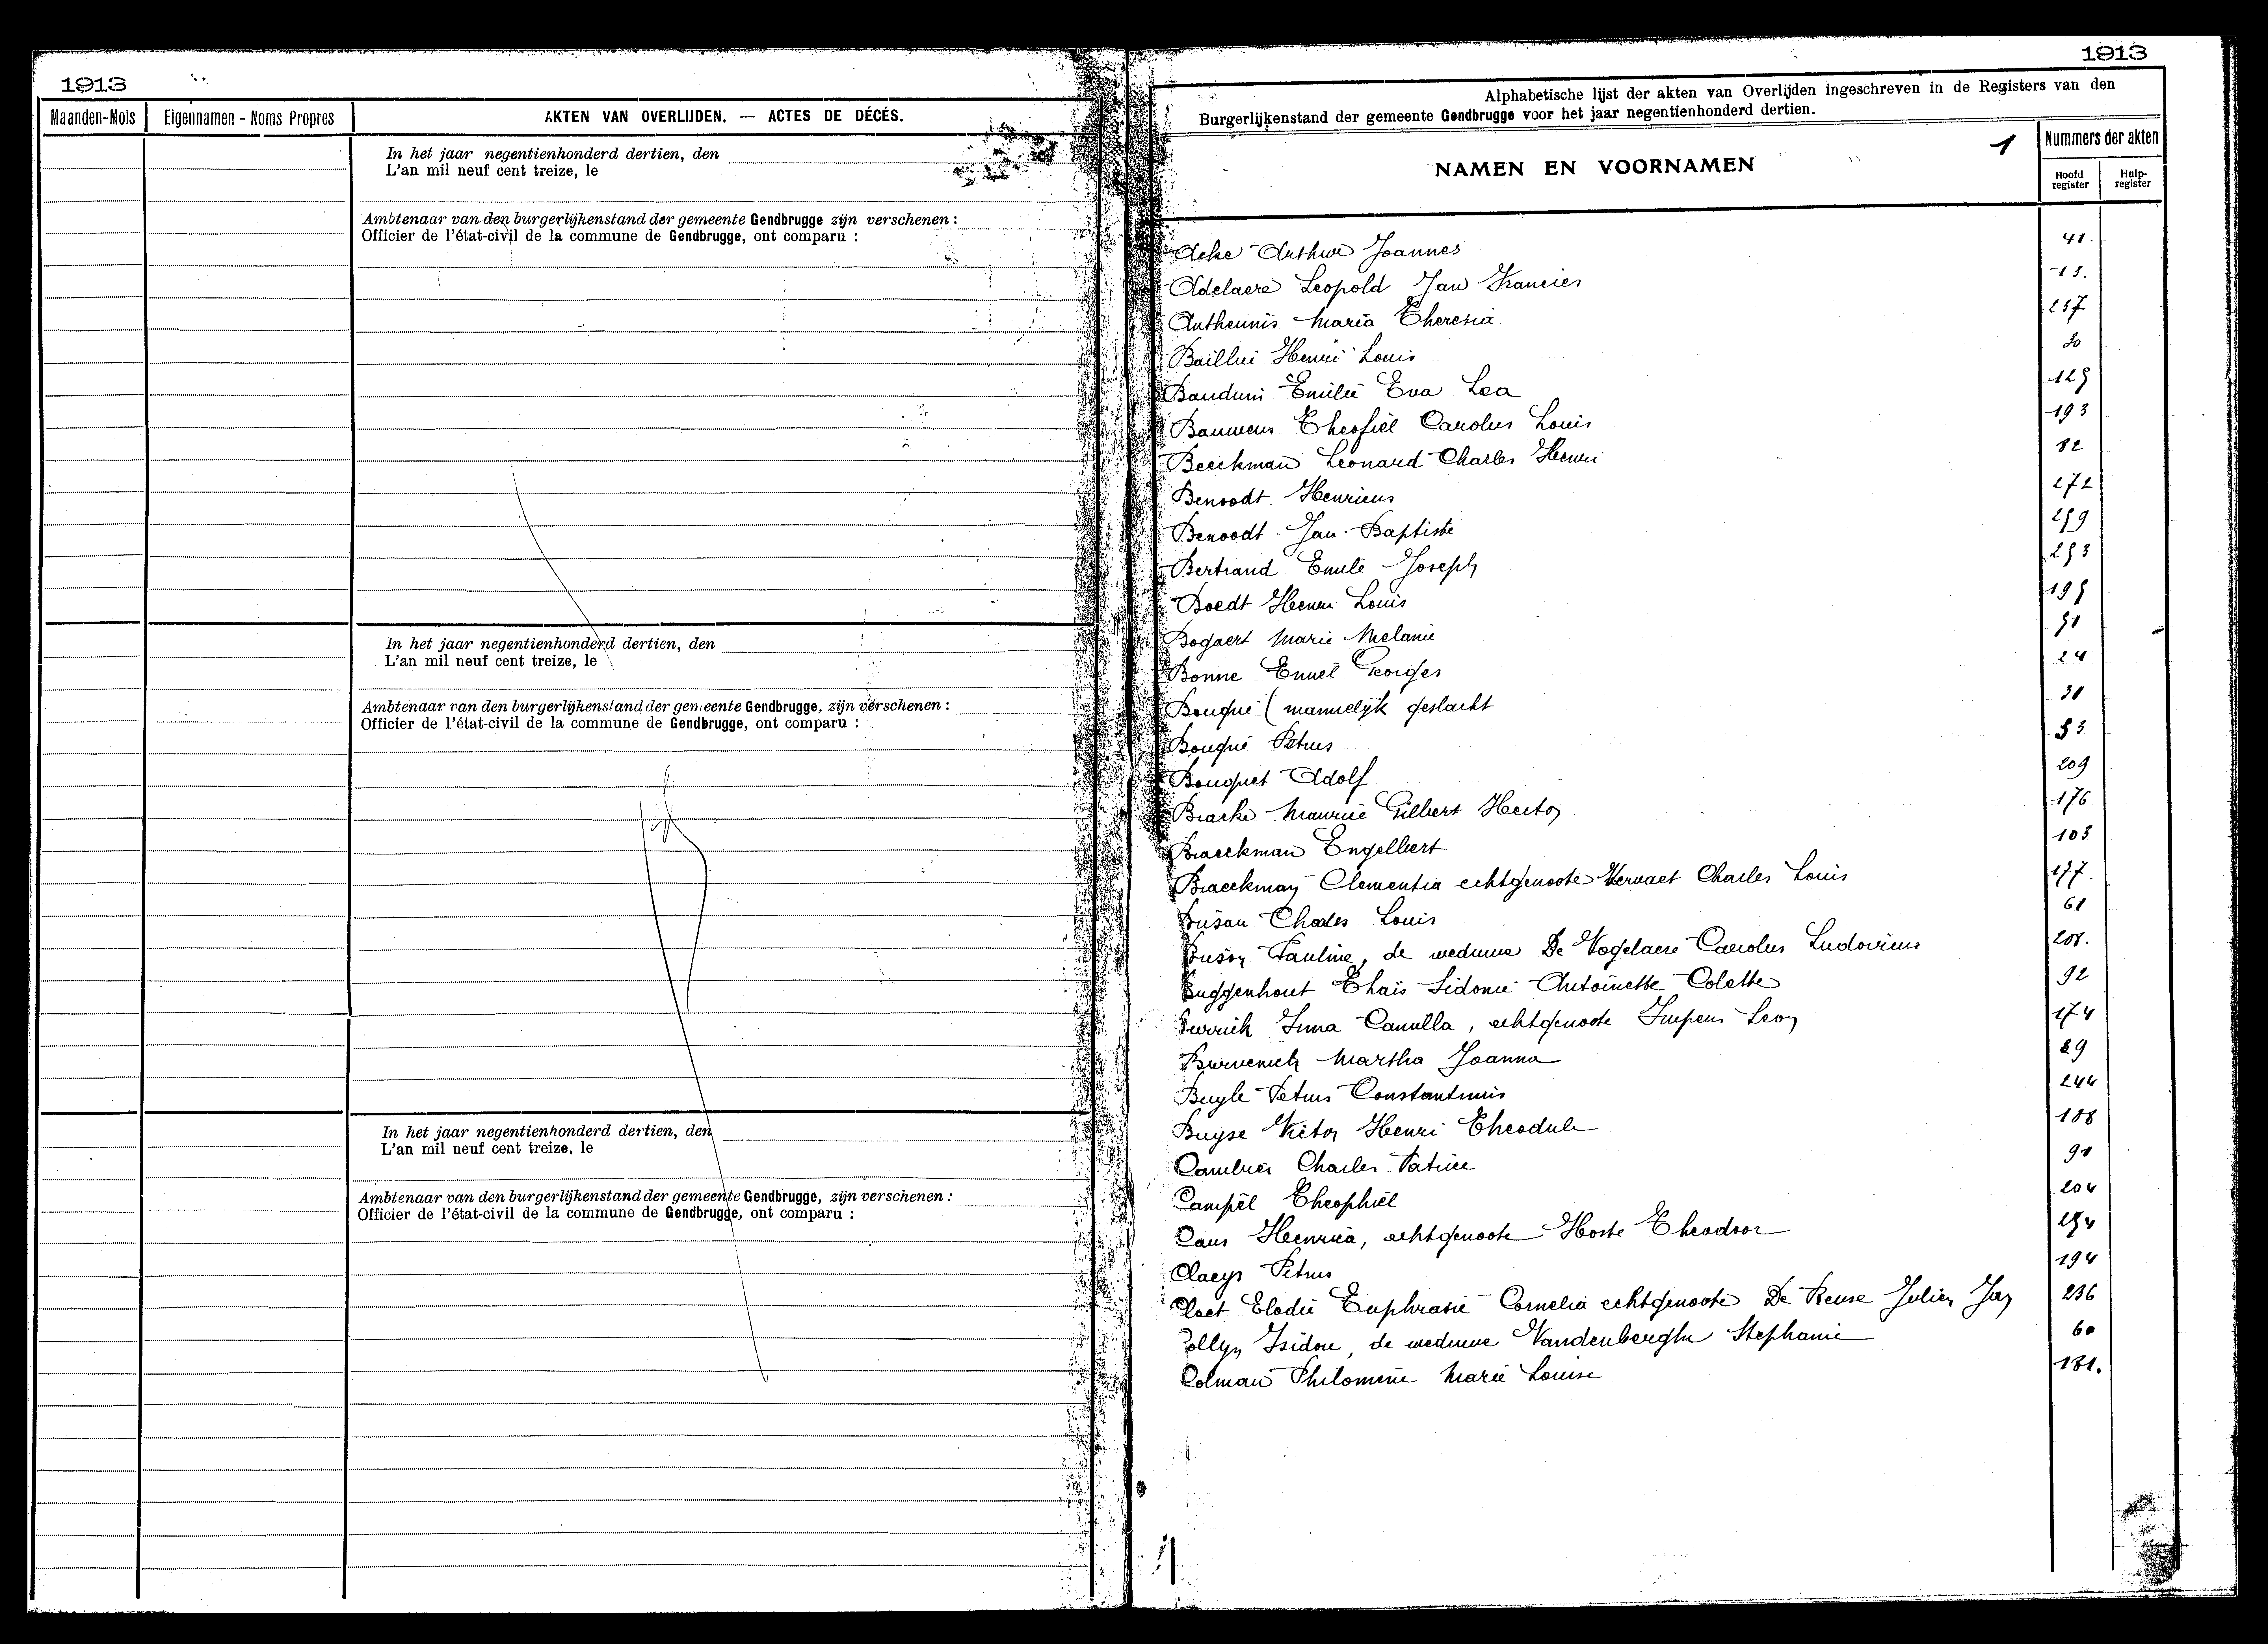 1913
Maanden-Mois
Eigennamen - Noms Propres
AKTEN VAN OVERLIJDEN. — ACTES DE DÉCÉS.
In het jaar negentienhonderd dertien, den
L'an mil neuf cent treize, le
Ambtenaar van den burgerlijkenstand der gemeente Gendbrugge zijn verschenen :
Officier de l'état-civil de la commune de Gendbrugge, ont comparu :
In het jaar negentienhonderd dertien, den
L'an mil neuf cent treize, le
Ambtenaar van den burgerlijkenstand der gemeente Gendbrugge, zijn verschenen :
Officier de l'état-civil de la commune de Gendbrugge, ont comparu :
In het jaar negentienhonderd dertien, den
L'an mil neuf cent treize, le
Ambtenaar van den burgerlijkenstand der gemeente Gendbrugge, zijn verschenen :
Officier de l'état-civil de la commune de Gendbrugge, ont comparu :
1913
Alphabetische lijst der akten van Overlijden ingeschreven in de Registers van den
Burgerlijkenstand der gemeente Gendbrugge voor het jaar negentienhonderd dertien.
1
NAMEN EN VOORNAMEN
Nummers der akten
Hoofd register
Hulp-register
Acke Arthur Joannes 41.
Adelaere Leopold Jan Francies 13.
Antheunis Maria Theresia 257
Baillui Henri Louis
Bauduin Emilie Eva Lea
Bauwens Theofiel Carolus Louis 193
Beeckman Leonard Charles Henri
Benoodt Henricus 272
Benoodt Jan Baptiste
Bertrand Emile Joseph
Boedt Henri Louis
Bogaert Marie Melanie
Bonne Emiel Georges 24
Bouqué (mannelijk geslacht
Bouqué Petrus
Bouquet Adolf 209
Bracke Maurice Gilbert Hector 176
Braeckman Engelbert 103
Braeckman Clementia echtgenoote Vervaet Charles Louis 177.
Buson Charles Louis 61
Buson Pauline, de weduwe De Vogelaere Carolus Ludovicus 201.
Buggenhout Thaïs Sidonie Antoinette Colette 92
Irma Camilla, echtgenoote Impens Leon 174
Burvenich Martha Joanna 89
Buyle Petrus Constantinus 244
Buyse Victor Henri Theodule 188
Cambier Charles Patrice 91
Campel Theophiel 204
Caus Henrica, echtgenoote Hoste Theodoor
Claeys Petrus 194
Cloet Elodie Euphrasie Cornelia echtgenoote De Reuse Julien Jan 236
Collyn Isidore, de weduwe Vandenberghe Stephanie 60
Colman Philomene Marie Louise 181.